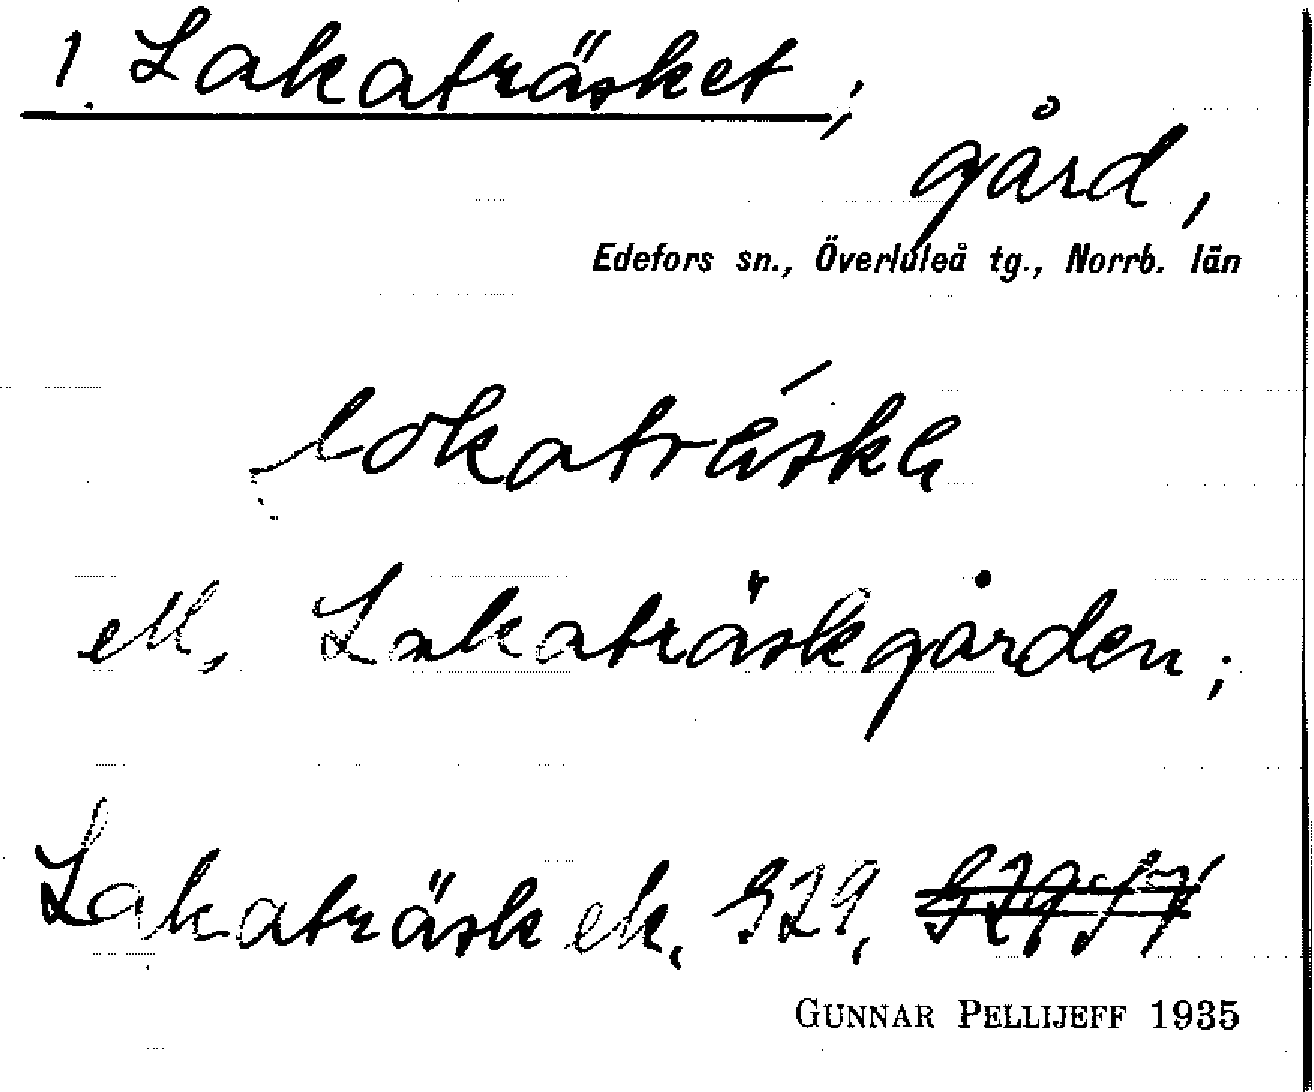 1. Lakaträsket;
gård,
Edefors sn., Överluleå tg., Norrb. län
ell. Lakaträskgården;
Lakaträsk ek. 329,
GUNNAR PELLIJEFF 1935